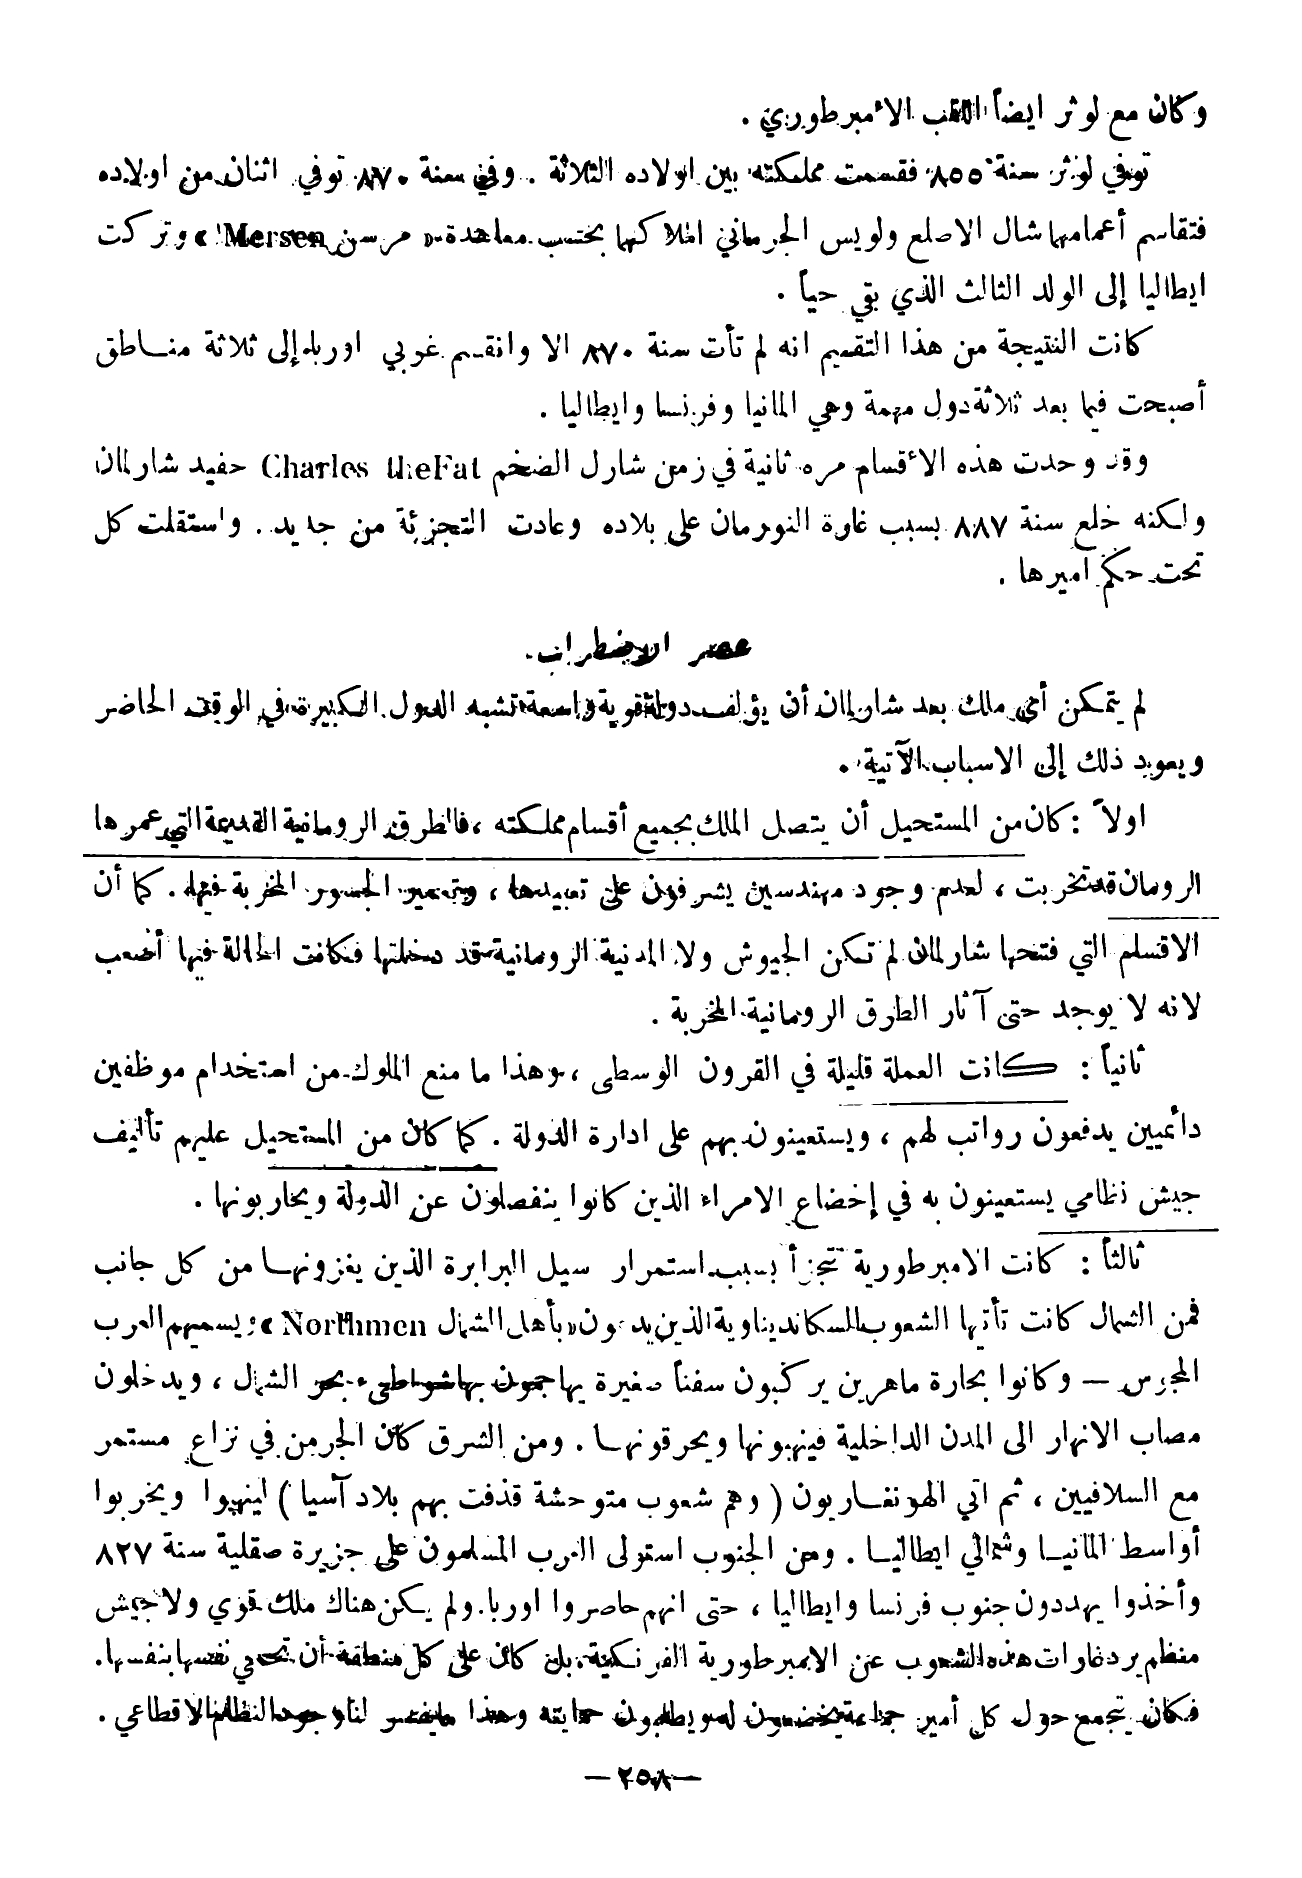 وكان مع لوثر ايضاً اللقب الأمبرطوري .
توفي لوثر سنة ٨٥٥ فقسمت مملكته بين اولاده الثلاثة . وفي سنة ٨٧٠ توفي اثنان من اولاده
فتقاسم أعمامهما شال الاصلع ولويس الجرماني املاكهما بحسب معاهدة « مرسن Mersen » وتركت
ايطاليا إلى الولد الثالث الذي بقي حياً .
كانت النتيجة من هذا التقسيم انه لم تأت سنة ٨٧٠ الا وانقسم غربي اوربا إلى ثلاثة مناطق
أصبحت فيما بعد ثلاثة دول مهمة وهي المانيا وفرنسا وايطاليا .
وقد وحدت هذه الأقسام مره ثانية في زمن شارل الضخم Charles theFat حفيد شارلمان
ولكنه خلع سنة ٨٨٧ بسبب غارة النورمان على بلاده وعادت التجزئة من جديد . واستقلت كل
تحت حكم أميرها .
عصر الاضطراب .
لم يتمكن أي ملك بعد شارلمان أن يؤلف دولة قوية واسعة تشبه الدول الكبيرة في الوقت الحاضر
ويعود ذلك إلى الاسباب الآتية .
اولاً : كان من المستحيل أن يتصل الملك بجميع أقسام مملكته ، فالطرق الرومانية القديمة التي عمرها
الرومان قد تخربت ، لعدم وجود مهندسين يشرفون على تعبيدها ، وبتعمير الجسور المخربة فيها . كما أن
الاقسام التي فتحها شارلمان لم تكن الجيوش ولا المدنية الرومانية قد دخلتها فكانت الحالة فيها أصعب
لانه لا يوجد حتى آثار الطرق الرومانية المخربة .
ثانياً : كانت العملة قليلة في القرون الوسطى ، وهذا ما منع الملوك من استخدام موظفين
دائميين يدفعون رواتب لهم ، ويستعينون بهم على ادارة الدولة . كما كان من المستحيل عليهم تأليف
جيش نظامي يستعينون به في إخضاع الامراء الذين كانوا ينفصلون عن الدولة ويحاربونها .
ثالثاً : كانت الامبرطورية تتجزأ بسبب استمرار سيل البرابرة الذين يغزونها من كل جانب
فمن الشمال كانت تأتيها الشعوب السكانديناوية الذين يدعون « بأهل الشمال Northmen » ويسميهم العرب
المجوس — وكانوا بحارة ماهرين يركبون سفناً صغيرة يهاجمون بها شواطىء بحر الشمال ، ويدخلون
مصاب الانهار الى المدن الداخلية فينهبونها ويحرقونها . ومن الشرق كان الجرمن في نزاع مستمر
مع السلافيين ، ثم اتي الهونغاريون ( وهم شعوب متوحشة قذفت بهم بلاد آسيا ) لينهبوا ويخربوا
أواسط المانيا وشمالي ايطاليا . ومن الجنوب استولى العرب المسلمون على جزيرة صقلية سنة ٨٢٧
وأخذوا يهددون جنوب فرنسا وايطاليا ، حتى انهم حاصروا اوربا . ولم يكن هناك ملك قوي ولا جيش
منظم يرد غارات هذه الشعوب عن الامبرطورية الفرنكية ، بل كان على كل منطقة أن تحمي نفسها بنفسها .
فكان يتجمع حول كل أمير جماعة يخضعون له ويطلبون حمايته وهذا ما يفسر لنا وجود النظام الاقطاعي .
— ٢٥٨ —